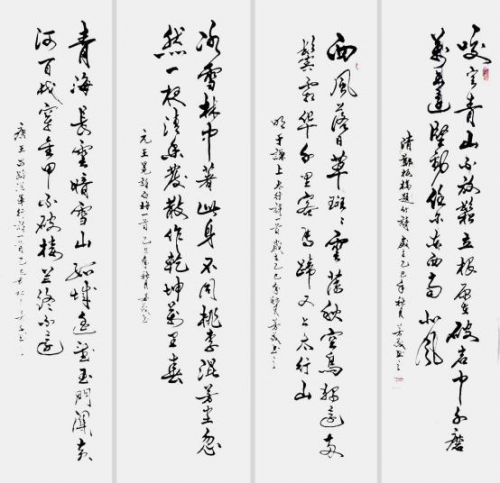 咬定青山不放鬆立根原在破岩中千磨
萬擊還堅勁任爾東西南北風
清鄭板橋題竹詩歲在乙巳年秋月
西風落日草斑斑雲薄秋空鳥獨還兩
鬢霜華千里客馬蹄又上太行山
明于謙上太行詩一首歲在乙巳年秋月
冰雪林中著此身不同桃李混芳塵忽
然一夜清香發散作乾坤萬里春
元王冕詩白梅一首乙巳年秋月
青海長雲暗雪山孤城遙望玉門關黃
沙百戰穿金甲不破樓蘭終不還
唐王昌齡從軍行詩一首乙巳年